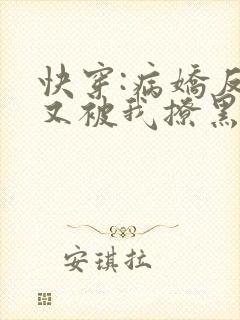 快穿:病娇反
又被我撩黑
安琪拉